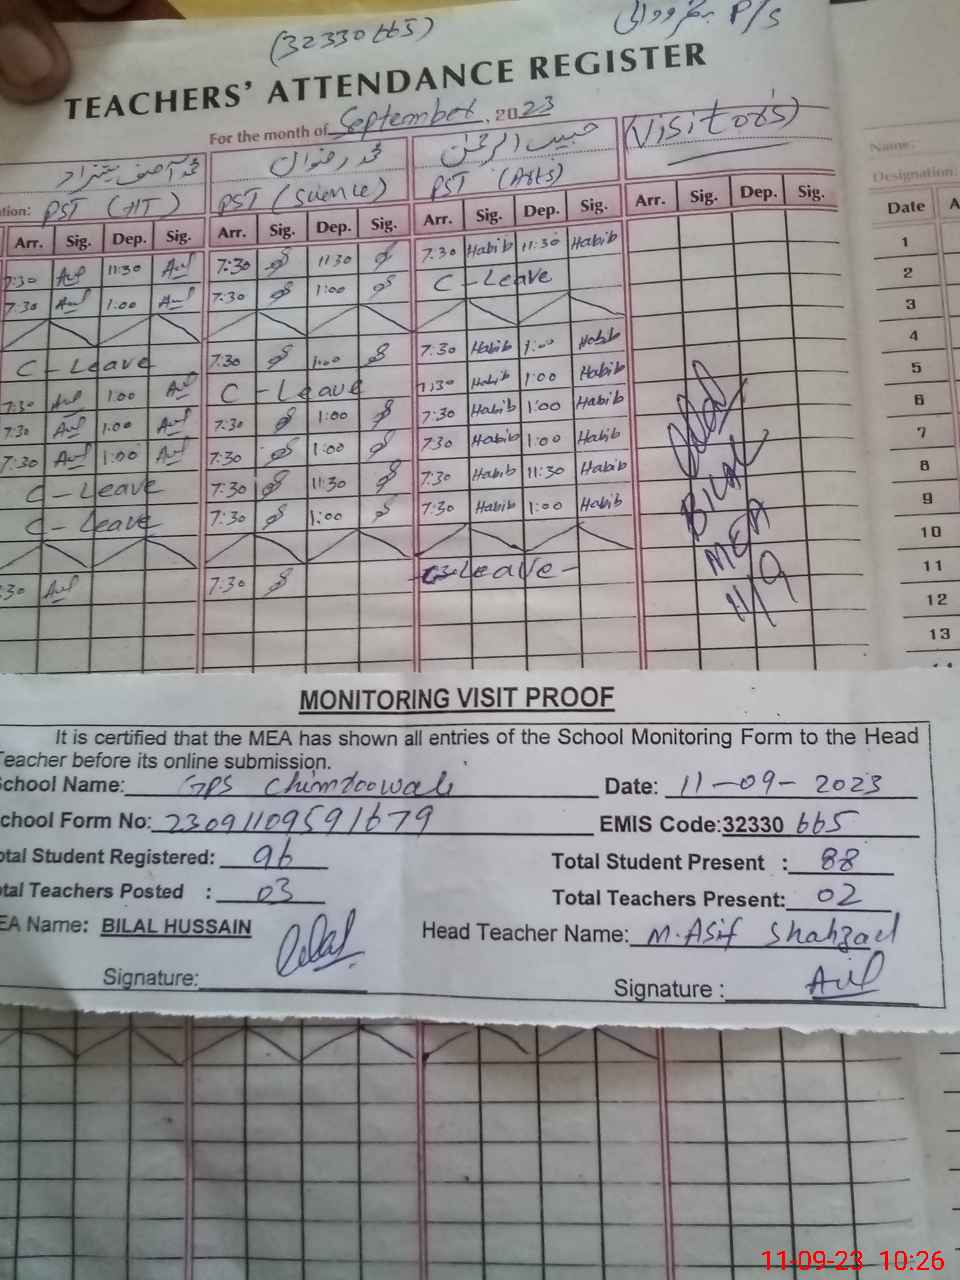 (32330665)
P/S
TEACHERS' ATTENDANCE REGISTER
For the month of September, 2023
محمد آصف شہزاد محمد رضوان حبیب الرحمٰن (Visitors)
tion: PST (HT) PST (Science) PST (Arts)
Name:
Designation:
Arr. Sig. Dep. Sig. Arr. Sig. Dep. Sig. Arr. Sig. Dep. Sig. Arr. Sig. Dep. Sig. Date A
7:30 Asif 11:30 Asif 7:30 11:30 7:30 Habib 11:30 Habib 1
7:30 Asif 1:00 Asif 7:30 1:00 C-Leave 2
3
C-Leave 7:30 1:00 7:30 Habib 1:00 Habib 4
7:30 Asif 1:00 Asif C-Leave 7:30 Habib 1:00 Habib 5
7:30 Asif 1:00 Asif 7:30 1:00 7:30 Habib 1:00 Habib 6
7:30 Asif 1:00 Asif 7:30 1:00 7:30 Habib 1:00 Habib 7
C-Leave 7:30 11:30 7:30 Habib 11:30 Habib 8
C-Leave 7:30 1:00 7:30 Habib 1:00 Habib 9
10
:30 Asif 7:30 C-Leave- 11
12
13
Bilal
BILAL
MEA
11/9
MONITORING VISIT PROOF
It is certified that the MEA has shown all entries of the School Monitoring Form to the Head
Teacher before its online submission.
School Name: GPS Date: 11-09-2023
chool Form No: 23091109591679 EMIS Code:32330 665
otal Student Registered: 96 Total Student Present : 88
otal Teachers Posted : 03 Total Teachers Present: 02
EA Name: BILAL HUSSAIN Head Teacher Name: M.Asif Shahzad
Signature: Bilal Signature : Asif
11-09-23 10:26